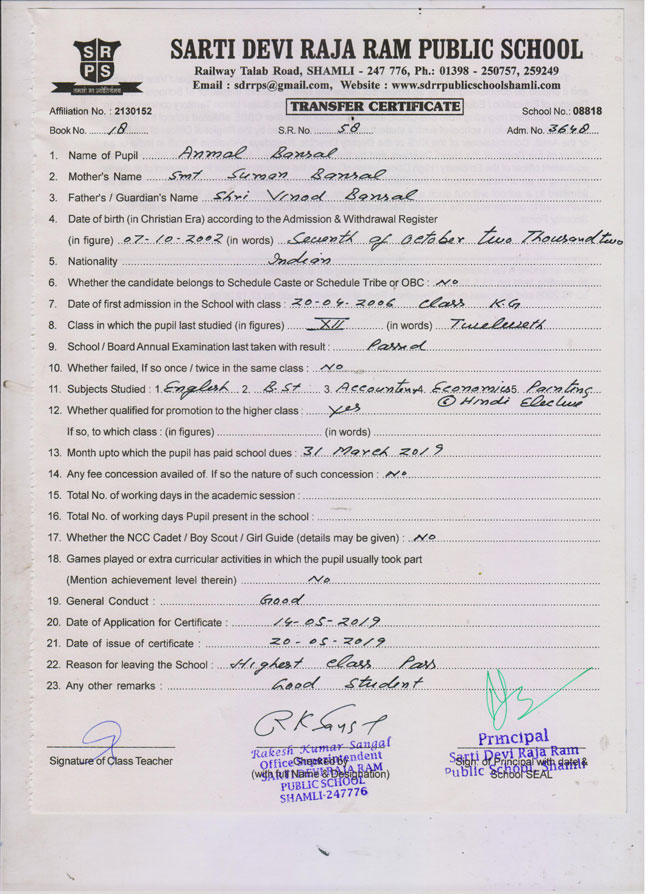 SR
PS
SARTI DEVI RAJA RAM PUBLIC SCHOOL
Railway Talab Road, SHAMLI - 247 776, Ph.: 01398 - 250757, 259249
Email : sdrrps@gmail.com, Website : www.sdrrpublicschoolshamli.com
Affiliation No. : 2130152 TRANSFER CERTIFICATE School No.: 08818
Book No. 18 S.R. No. 58 Adm. No. 3648
1. Name of Pupil Anmal Bansal
2. Mother's Name Smt Suman Bansal
3. Father's / Guardian's Name Shri Vinod Bansal
4. Date of birth (in Christian Era) according to the Admission & Withdrawal Register
(in figure) 07-10-2002 (in words) Seventh of October two Thousand two
5. Nationality Indian
6. Whether the candidate belongs to Schedule Caste or Schedule Tribe or OBC : No
7. Date of first admission in the School with class : 20-04-2006 class K.G
8. Class in which the pupil last studied (in figures) XII (in words) Twelweth
9. School / Board Annual Examination last taken with result : Passed
10. Whether failed, If so once / twice in the same class : No
11. Subjects Studied : 1. English 2. B.St 3. Accountency 4. Economics 5. Painting
⑥ Hindi Elective
12. Whether qualified for promotion to the higher class : Yes
If so, to which class : (in figures) (in words)
13. Month upto which the pupil has paid school dues : 31 March 2019
14. Any fee concession availed of. If so the nature of such concession : No
15. Total No. of working days in the academic session :
16. Total No. of working days Pupil present in the school :
17. Whether the NCC Cadet / Boy Scout / Girl Guide (details may be given) : No
18. Games played or extra curricular activities in which the pupil usually took part
(Mention achievement level therein) No
19. General Conduct : Good
20. Date of Application for Certificate : 14-05-2019
21. Date of issue of certificate : 20-05-2019
22. Reason for leaving the School : Highest class Pass
23. Any other remarks : Good Student
Signature of Class Teacher
Rakesh Kumar Sangal
Office Superintendent
Checked by
SARTI DEVI RAJA RAM
(with full Name & Designation)
PUBLIC SCHOOL
SHAMLI-247776
Principal
Sarti Devi Raja Ram
Sign. of Principal with date &
Public School, Shamli
School SEAL